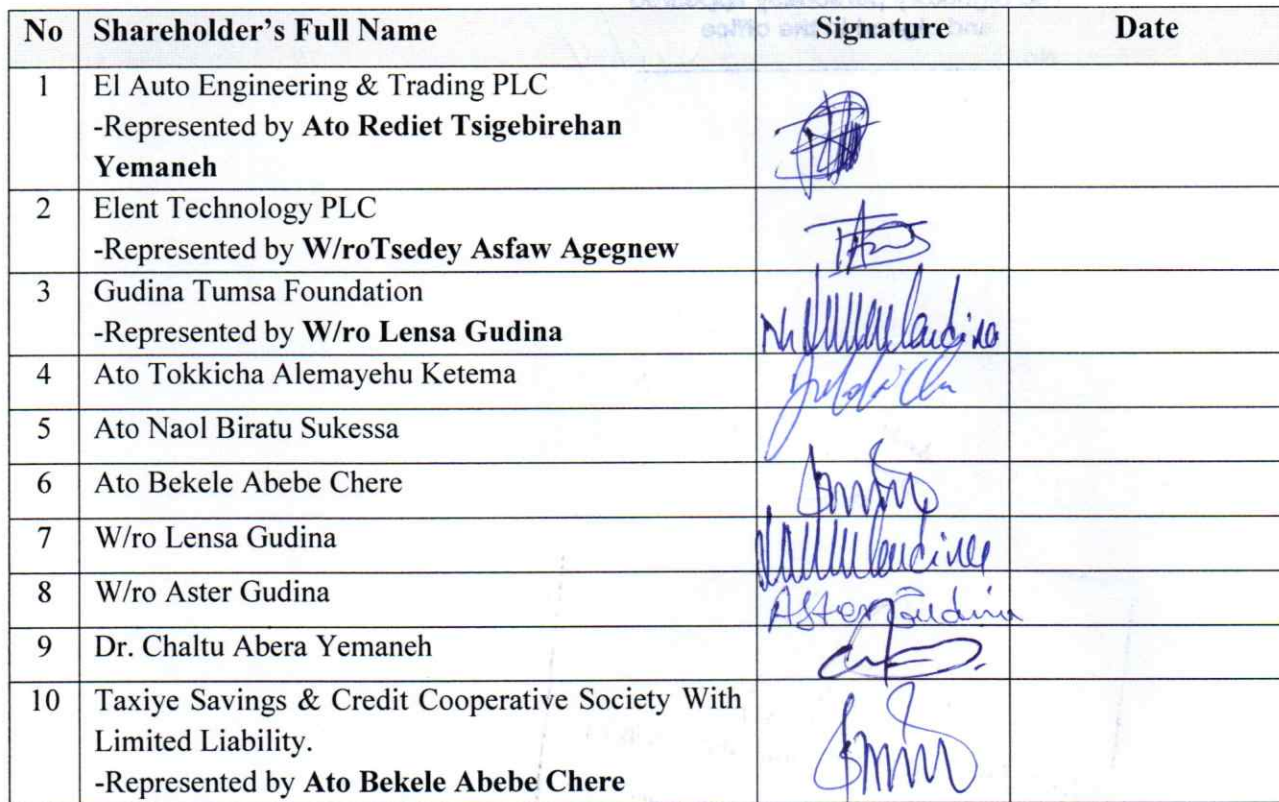 No Shareholder's Full Name Signature Date
1 El Auto Engineering & Trading PLC
-Represented by Ato Rediet Tsigebirehan
Yemaneh
2 Elent Technology PLC
-Represented by W/roTsedey Asfaw Agegnew
3 Gudina Tumsa Foundation
-Represented by W/ro Lensa Gudina
4 Ato Tokkicha Alemayehu Ketema
5 Ato Naol Biratu Sukessa
6 Ato Bekele Abebe Chere
7 W/ro Lensa Gudina
8 W/ro Aster Gudina Aster Gudina
9 Dr. Chaltu Abera Yemaneh
10 Taxiye Savings & Credit Cooperative Society With
Limited Liability.
-Represented by Ato Bekele Abebe Chere